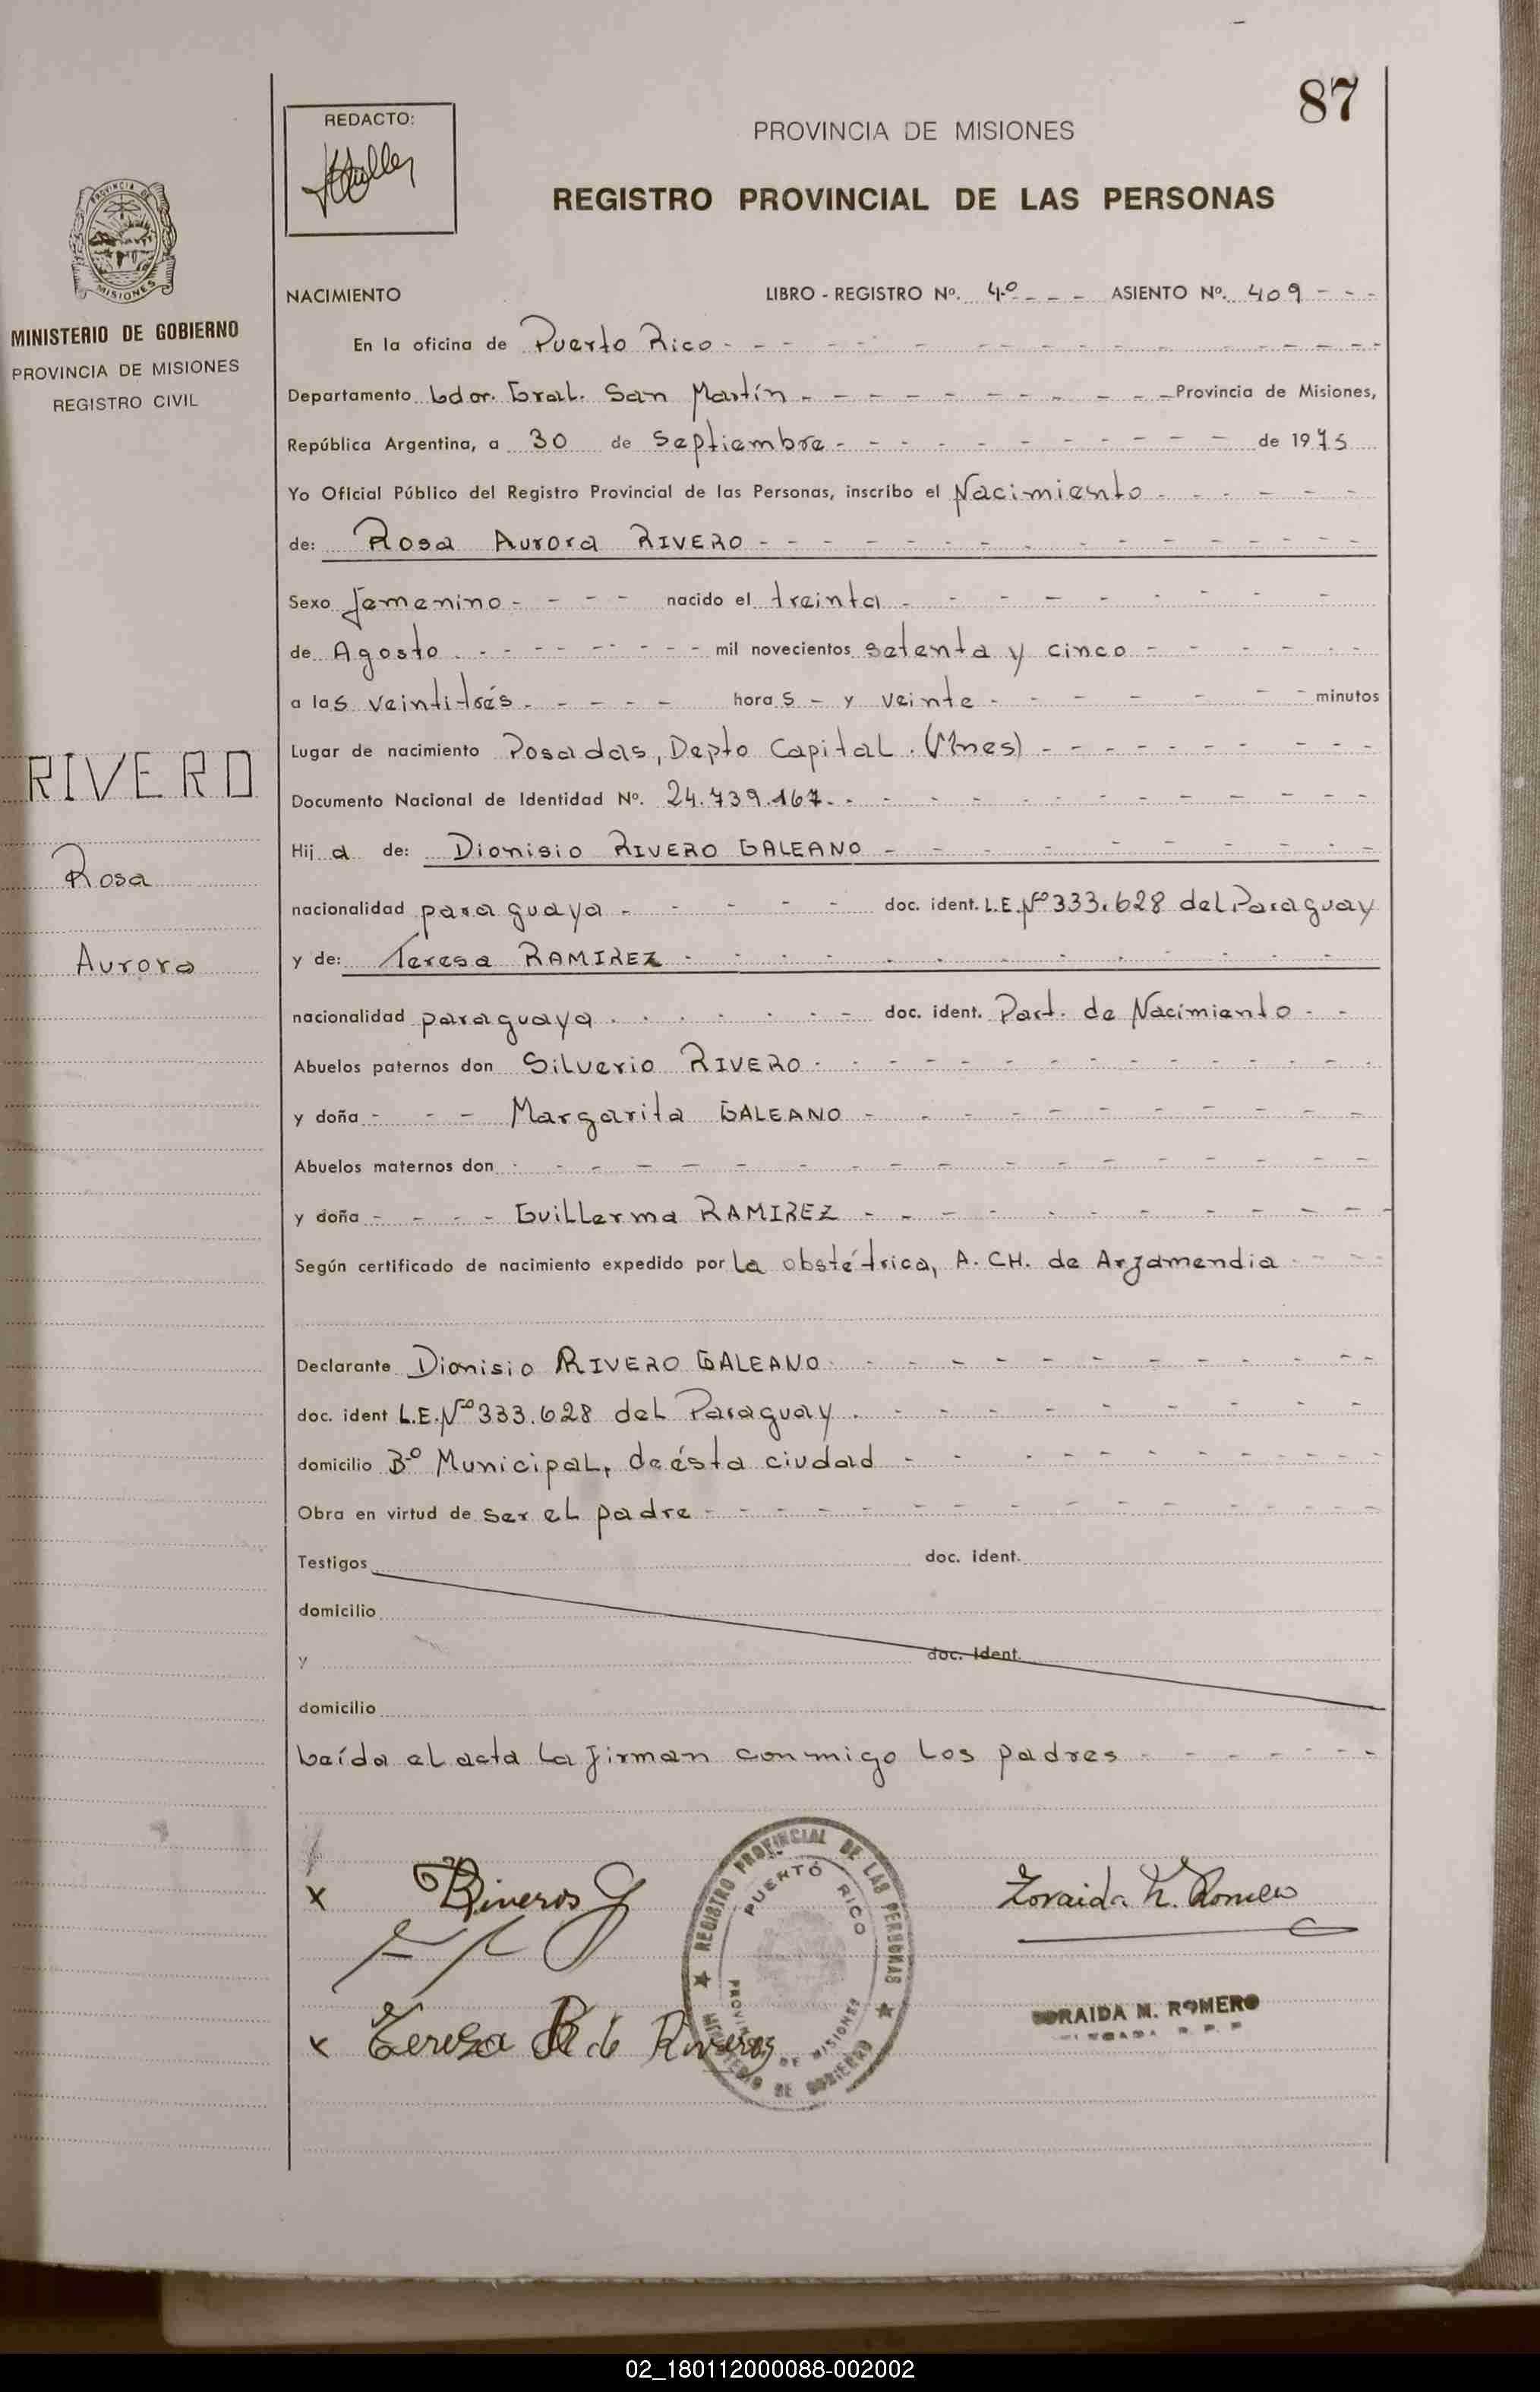 87
REDACTO:
PROVINCIA DE MISIONES
REGISTRO PROVINCIAL DE LAS PERSONAS
PROVINCIA DE
MISIONES
MINISTERIO DE GOBIERNO
PROVINCIA DE MISIONES
REGISTRO CIVIL
RIVERO
Rosa
Aurora
NACIMIENTO LIBRO - REGISTRO Nº. 4º - - - ASIENTO Nº. 409 - - -
En la oficina de Puerto Rico
Departamento Ldor. Gral. San Martín Provincia de Misiones,
República Argentina, a 30 de Septiembre de 1975
Yo Oficial Público del Registro Provincial de las Personas, inscribo el Nacimiento
de: Rosa Aurora RIVERO
Sexo femenino nacido el treinta
de Agosto mil novecientos setenta y cinco
a las veintitrés horas y veinte minutos
Lugar de nacimiento Posadas, Depto Capital. (Mnes)
Documento Nacional de Identidad Nº. 24.739.167.
Hija de: Dionisio RIVERO GALEANO
nacionalidad paraguaya doc. ident. L.E. Nº 333.628 del Paraguay
y de: Teresa RAMIREZ
nacionalidad paraguaya doc. ident. Part. de Nacimiento
Abuelos paternos don Silverio RIVERO
y doña Margarita GALEANO
Abuelos maternos don
y doña Guillerma RAMIREZ
Según certificado de nacimiento expedido por la obstétrica, A. CH. de Arzamendia
Declarante Dionisio RIVERO GALEANO
doc. ident L.E. Nº 333.628 del Paraguay
domicilio Bº Municipal, de ésta ciudad
Obra en virtud de ser el padre
Testigos doc. ident.
domicilio
y doc. ident.
domicilio
Leída el acta la firman conmigo los padres
x Riveros G
REGISTRO PROVINCIAL DE LAS PERSONAS
PUERTO RICO
PROVINCIA DE MISIONES
MINISTERIO DE GOBIERNO
Zoraida M. Romero
ZORAIDA M. ROMERO
x Tereza R de Riveros
02_180112000088-002002